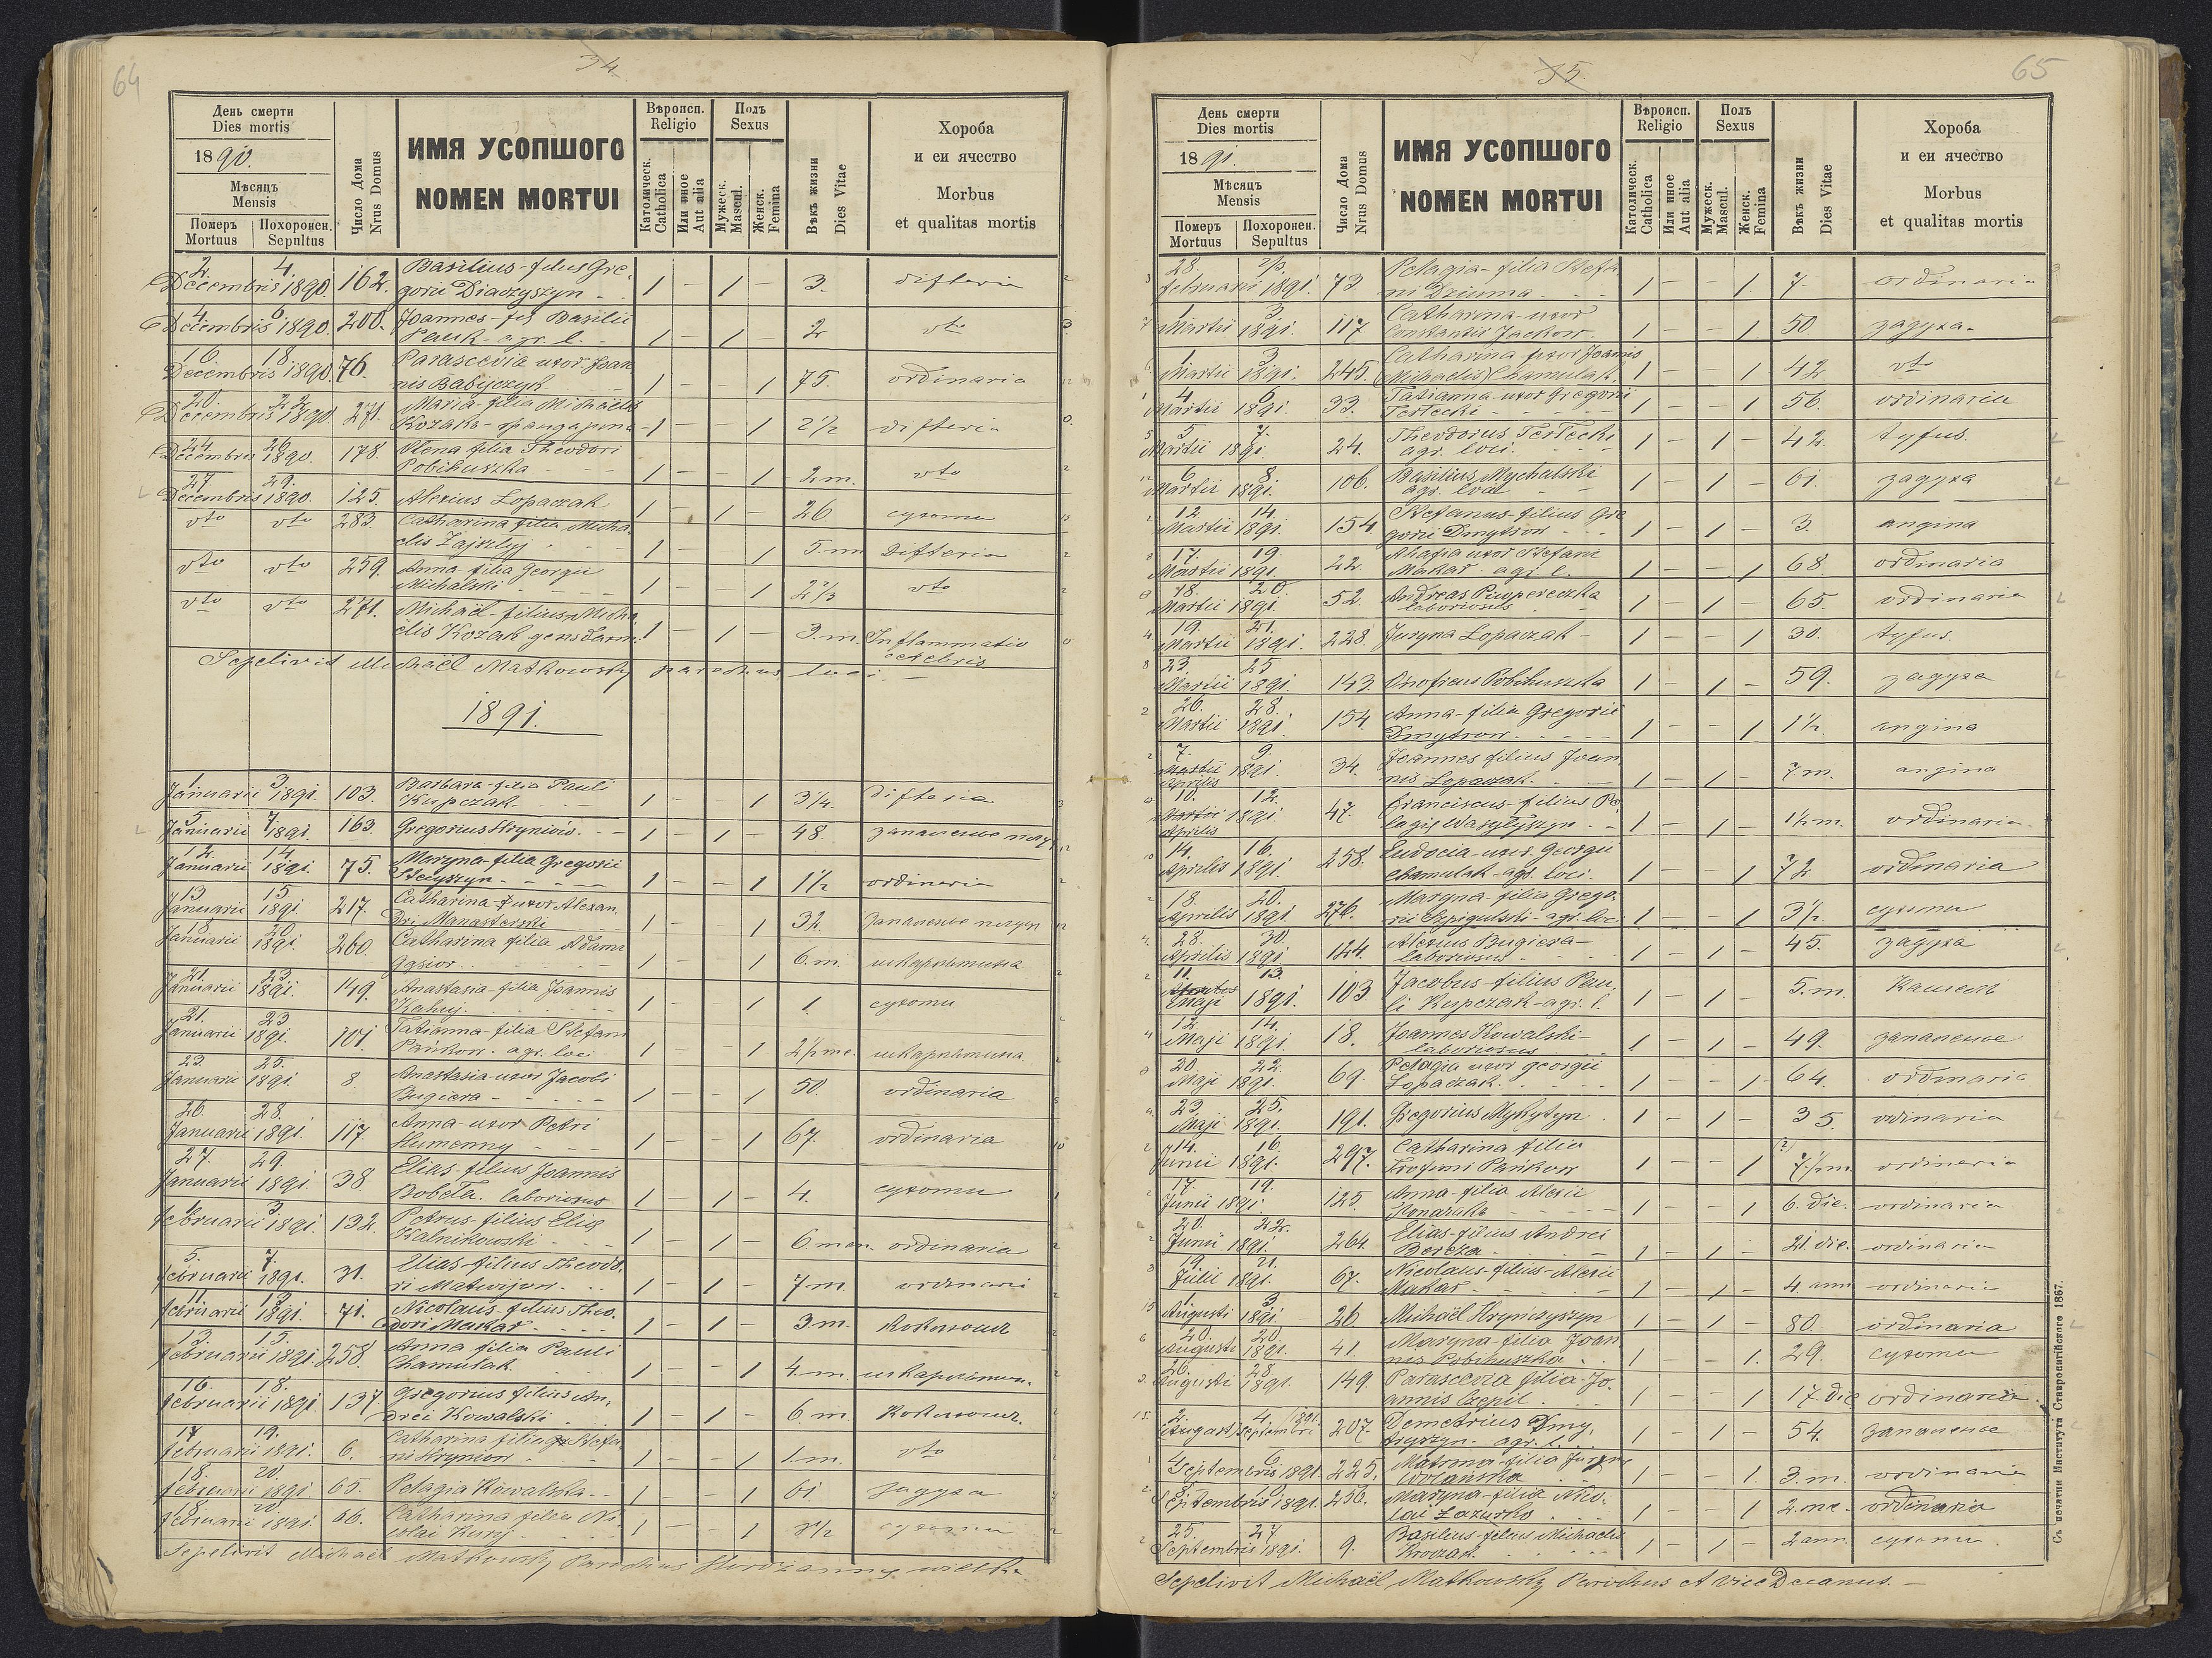 64
34
День смерти
Dies mortis
1890.
Мѣсяць
Mensis
Померъ
Mortuus
Похоронен.
Sepultus
Число Дома
Nrus Domus
ИМЯ УСОПШОГО
NOMEN MORTUI
Вѣроисп.
Religio
Католическ.
Catholica
Или иное
Aut alia
Полъ
Sexus
Мужеск.
Mascul.
Женск.
Femina
Вѣкъ жизни
Dies Vitae
Хороба
и еи ячество
Morbus
et qualitas mortis
2. 4. Basilius-filius Gre,
Decembris 1890. 162. gorii Diaczyszyn 1 – 1 – 3. difteria
4. 6. Joannes-fil Basilii
Decembris 1890. 200. Pauk-agr. l. 1 – 1 – 2 dto
16. 18. Parascevia uxor Joan
Decembris 1890. 76. nis Babijczyk 1 – – 1 75. ordinaria
20. 22. Maria-filia Michaelis
Decembris 1890. 271. Kozaka 1 – – 1 2½ difteria
24. 26. Olena filia Theodori
Decembris 1890. 178. Pobihuszka 1 – – 1 2 m. dto
27. 29.
Decembris 1890. 125 Alexius Lopaczak 1 – 1 – 26 сухоты
dto dto 283. Catharina filia Micha
elis Zajszlyj 1 – – 1 5. m difteria
dto dto 259. Anna-filia Georgii
Michalski 1 – – 1 2⅔ dto
dto dto 271. Michaël-filius Micha
elis Kozak gensdarm. 1 – 1 – 3. m. Inflammatio
cerebris
Sepelivit Michaël Matkowsky parochus loci. –
1891.
1 3 Barbara-filia Pauli
Januarii 1891. 103. Kupczak 1 – – 1 3¼. difteria
5. 7.
Januarii 1891. 163. Gregorius Hryniów. 1 – 1 – 48. запаленье
12. 14. Maryna-filia Gregorii
Januarii 1891. 75. Stecyszyn 1 – – 1 1½ ordinaria
13. 15 Catharina-uxor Alexan,
Januarii 1891. 217. dri Manasterski 1 – – 1 32. запаленье
18 20 Catharina filia Adami
Januarii 1891 260. Gąsior 1 – – 1 6. m. шкарлятина
21. 23 Anastasia-filia Joannis
Januarii 1891. 149. 1 – – 1 1. сухоты
21. 23 Tatianna-filia Stefani
Januarii 1891. 101. Pańkow. agr. loci 1 – – 1 2½ me. шкарлятина
23. 25. Anastasia-uxor Jacobi
Januarii 1891. 8. Bugiera 1 – – 1 50. ordinaria
26. 28. Anna-uxor Petri
Januarii 1891. 117. Humenny 1 – – 1 67. ordinaria
27. 29. Elias-filius Joannis
Januarii 1891. 38. Bobeta. laboriosus 1 – 1 – 4. сухоты
1. 3. Petrus-filius Elią
februarii 1891. 132 Kalnikowski 1 – 1 – 6. men. ordinaria
5. 7. Elias-filius Theodo,
februarii 1891. 31. ri Matwijow 1 – 1 – 7 m. ordinari
11. 13. Nicolaus-filius Theo,
februarii 1891. 71. dori Makar 1 – 1 – 3. m. Коклюшъ
13. 15. Anna filia Pauli
februarii 1891. 258. Chamulak 1 – – 1 4. m.
16. 18. Gregorius filius An,
februarii 1891. 137. drei Kowalski 1 – 1 – 6. m. Коклюшъ.
17 19. Catharina filia Stefa
februarii 1891. 6. ni Hryniow 1 – – 1 1. m. dto
18. 20.
februarii 1891. 65. Pelagia Kowalska 1 – – 1 61. задуха
18. 20 Catharina filia Ni
februarii 1891. 66. colai Kuryj 1 – – 1 сухоты
Sepelivit Michaël Matkowsky Parochus
65
35.
День смерти
Dies mortis
1891.
Мѣсяць
Mensis
Померъ
Mortuus
Похоронен.
Sepultus
Число Дома
Nrus Domus
ИМЯ УСОПШОГО
NOMEN MORTUI
Вѣроисп.
Religio
Католическ.
Catholica
Или иное
Aut alia
Полъ
Sexus
Мужеск.
Mascul.
Женск.
Femina
Вѣкъ жизни
Dies Vitae
Хороба
и еи ячество
Morbus
et qualitas mortis
28. Pelagia-filia Stefa
februarii 1891. 73. ni Dziuma 1 – – 1. 7. ordinaria
1. 3. Catharina-uxor
Martii 1891. 117 Constantii Jackow 1 – – 1 50 задуха.
1. 3 Catharina uxor Joannis
Martii 1891. 245. (Michaelis) Chamulak. 1 – – 1 42. dto
4. 6. Tatianna-uxor Gregorii
Martii 1891. 33. Terlecki 1 – – 1 56. ordinaria
5. 7. Theodorus Terlecki
Martii 1891. 24. agr. loci. 1 – 1 – 42. tyfus.
6. 8. Basilius Mychalski
Martii 1891. 106. agr. loci 1 – 1 – 61 задуха
12. 14. Stefanus-filius Gre
Martii 1891. 154 gorii Dmytrow 1 – 1 – 3. angina
17. 19. Ahafia uxor Stefani
Martii 1891. 22 Makar. agr. l. 1 – – 1 68. ordinaria
18. 20. Andreas Piwpereczka
Martii 1891. 52. laboriosus 1 – 1 – 65. ordinaria
19. 21.
Martii 1891. 228. Juryna Lopaczak 1 – – 1 30. tyfus.
23. 25
Martii 1891. 143. Onofreus Pobihuszka 1 – 1 – 59. задуха
26. 28. Anna-filia Gregorii
Martii 1891. 154 Dmytrow 1 – – 1 1½. angina
7. 9. Joannes filius Joan
Martii 1891. 34. nis Lopaczak. 1 – 1 – 7. m. angina
Aprilis
10. 12. Franciscus-filius Pe,
Martii 1891. 47. lagię Wasyłyszyn 1 – 1 – 1½ m. ordinaria
Aprilis
14. 16. Eudocia-uxor Georgii
Aprilis 1891. 258. Chamulak-agr. loci. 1 – – 1 72. ordinaria
18. 20. Maryna-filia Grego,
Aprilis 1891. 276. rii Szpigulski-agr. loci 1 – – 1 3½. сухоты
28. 30. Alexius Bugiera
Aprilis 1891. 124. laboriosus 1 – 1 – 45. задуха
11. 13. Jacobus-filius Pau,
Maji 1891. 103. li Kupczak-agr. l. 1 – 1 – 5. m. Кашель
12. 14. Joannes Kowalski
Maji 1891. 18. laboriosus 1 – 1 – 49. запаленье
20. 22. Pelagia uxor georgii
Maji 1891. 69. Lopaczak. 1 – – 1 64. ordinaria
23. 25.
Maji 1891. 191. Gregorius Mykytyn 1 – 1 – 35. ordinaria
14. 16. Catharina filia (?)
Junii 1891. 297. Trofimi Pańkow 1 – – 1 7½ m ordinaria
17. 19. Anna-filia Alexii
Junii 1891. 125. 1 – – 1 6. die. ordinaria
20. 22. Elias-filius Andrei
Junii 1891. 264. Bereza 1 – 1 – 21 die. ordinaria
19. 21. Nicolaus-filius-Alexii
Julii 1891. 67. Makar 1 – 1 – 4 ann ordinaria
1. 3.
Augusti 1891. 26 Michaël Hrynczyszyn 1 – 1 – 80. ordinaria
20. 20. Maryna filia Joan
Augusti 1891. 41. nis Pobihuszka 1 – – 1. 29. сухоты
26. 28 Parascevia filia Jo,
Augusti 1891. 149. annis Czepil 1 – – 1 17. die ordinaria
2. 4. 1891. Demetrius Dmy,
Augusti Septembri 207. tryszyn. agr. l. 1 – 1 – 54. запаленье
4 6 Matrona-filia
Septembris 1891. 225. Wolańska 1 – – 1. 3. m. ordinaria
Maryna-filia Nico,
Septembris 1891. 256. lai Lazurko 1 – – 1 2. me. ordinaria
25. 27 Basilius-filius Michaelis
Septembris 1891. 9. 1 – 1 – 2 ann. сухоты
Sepelivit Michaël Matkowsky Parochus et vice Decanus. –
Съ печатни Института Ставропигійского 1867.